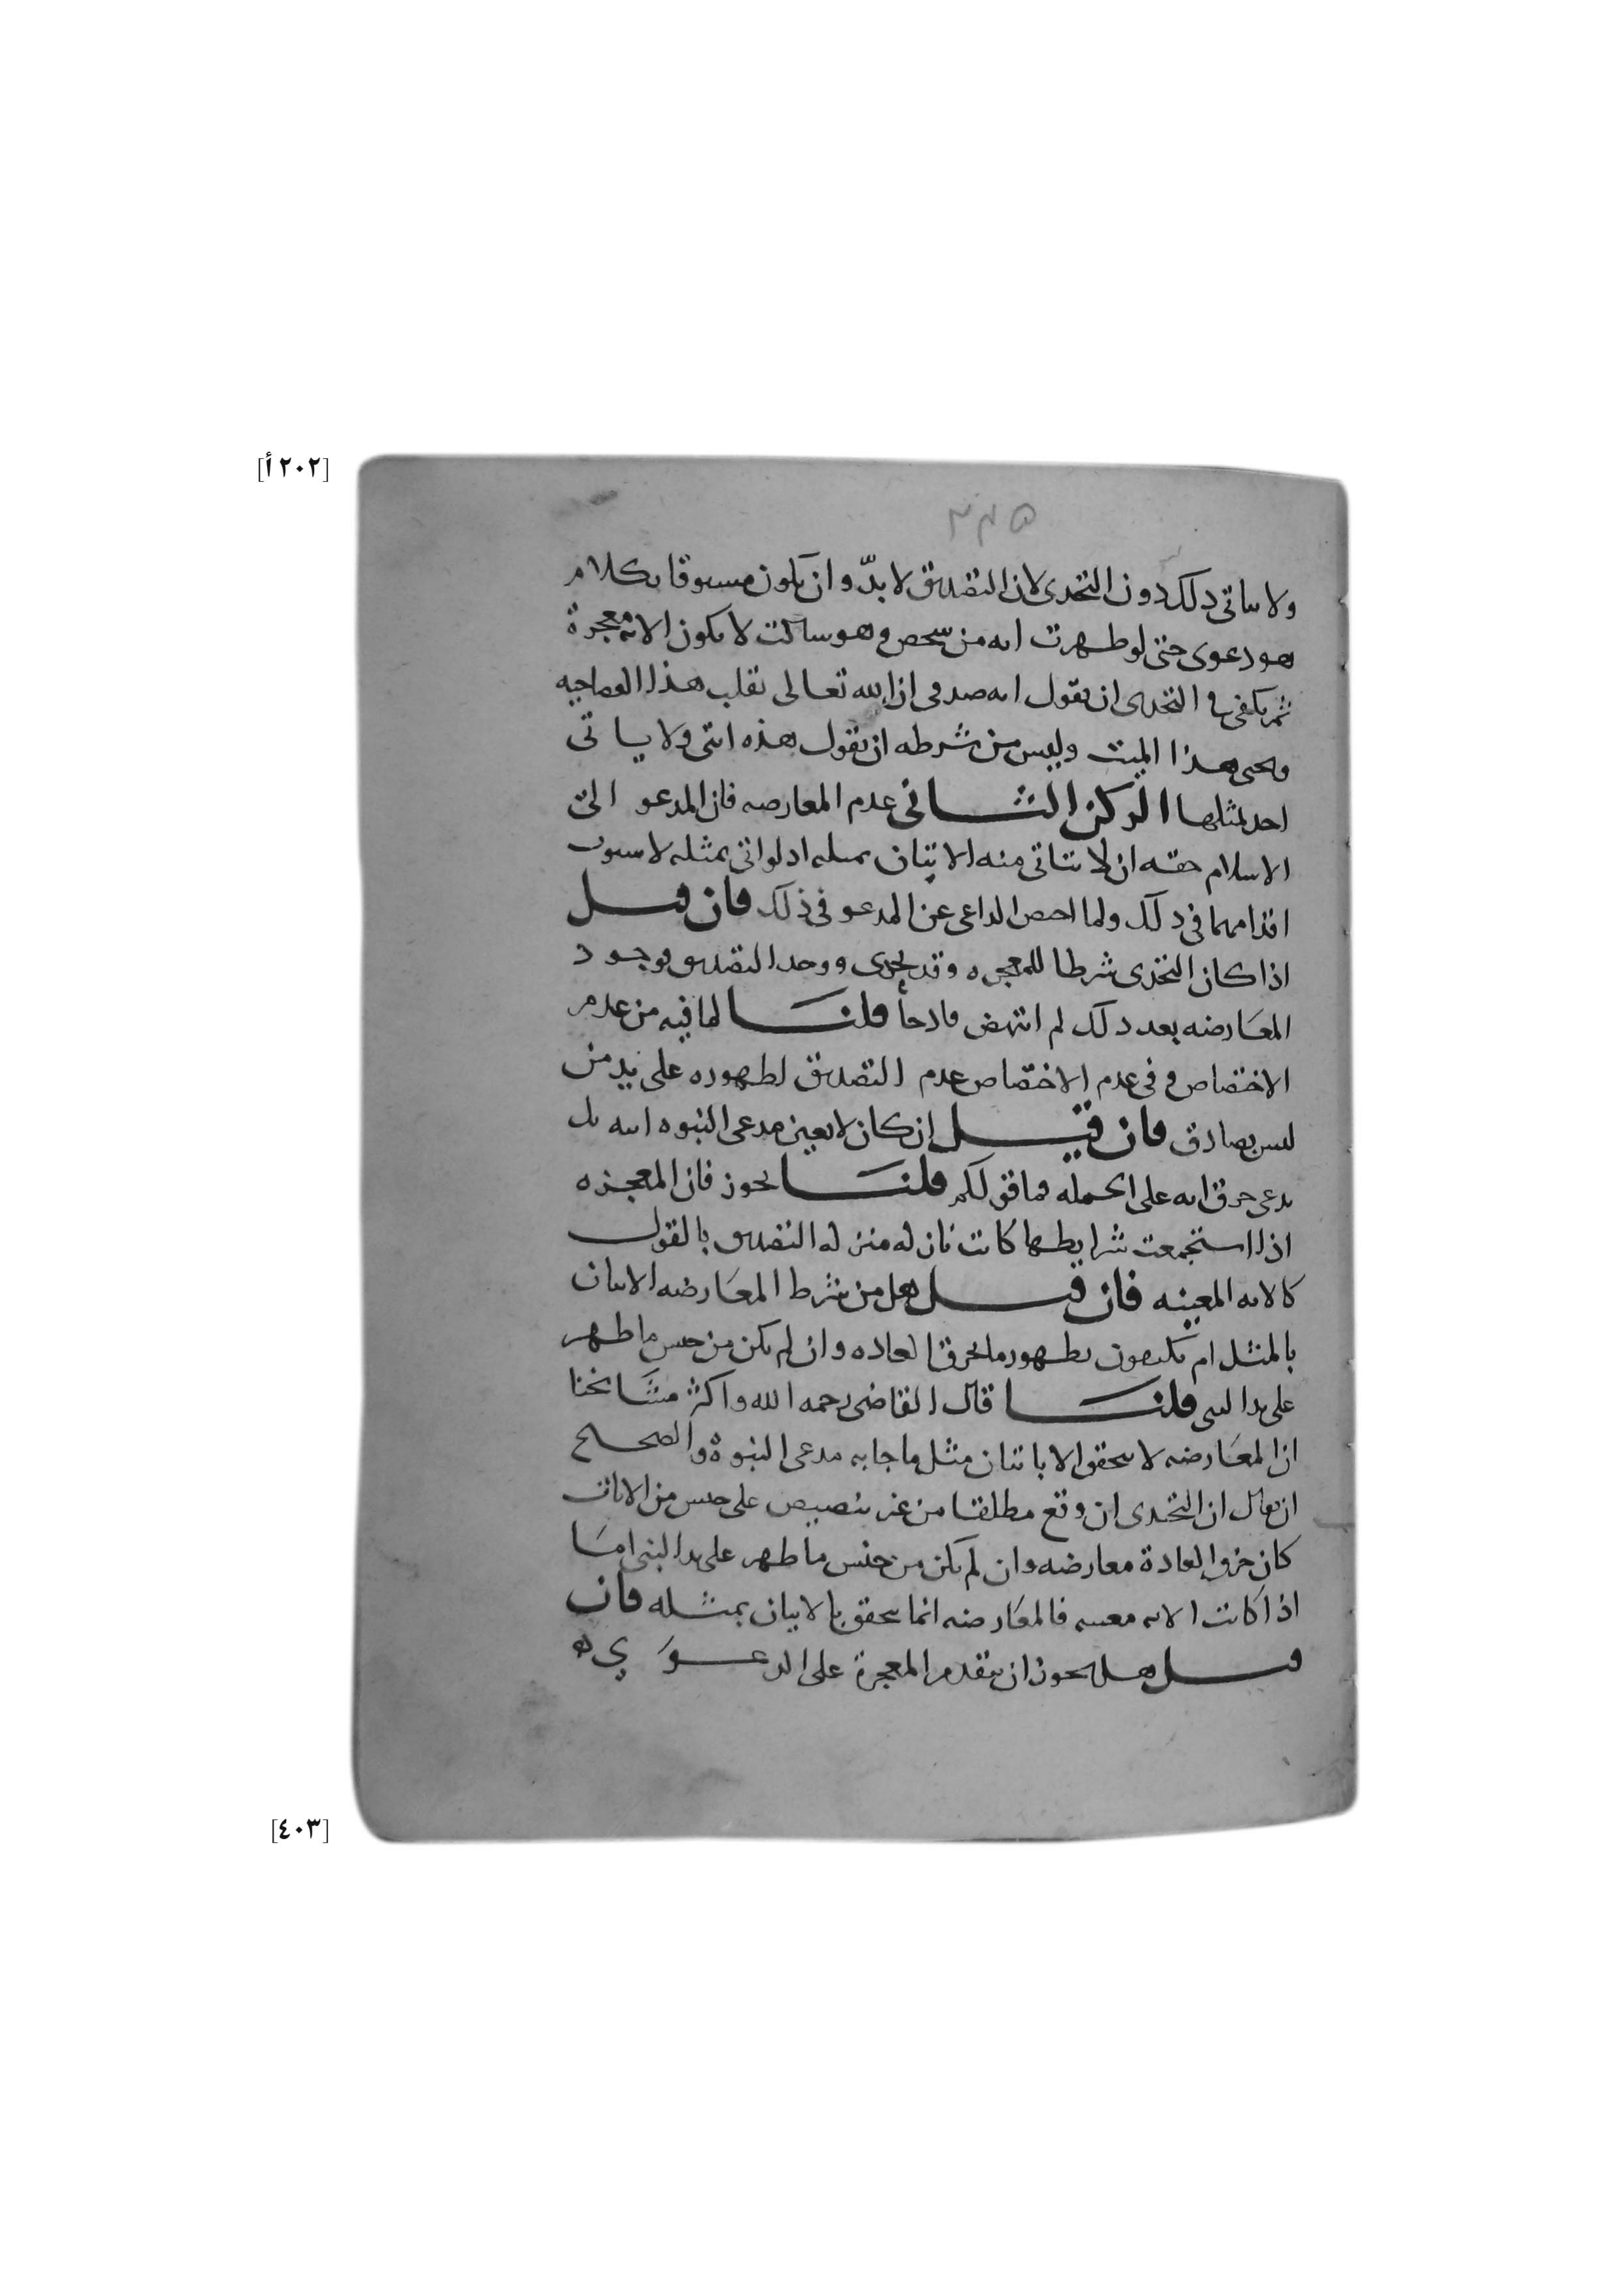 [٢٠٢ أ]
٣٣٥
ولا يتاتى ذلك دون التحدى لان التصديق لا بدّ وان يكون مسبوقا بكلام
هو دعوى حتى لو ظهرت ايه من شخص وهو ساكت لا يكون الايه معجرة
ثم يكفى فى التحدى ان يقول ايه صدقى ان الله تعالى يقلب هذا العصا حيه
ويحى هذا الميت وليس من شرطه ان يقول هذه ايتى ولا ياتى
احد بمثلها الركن الثانى عدم المعارضه فان المدعو الى
الاسلام حقه ان لا يتاتى منه الاتيان بمثله اذ لو اتى بمثله لاستوت
اقدامهما فى ذلك ولما اختص الداعى عن المدعو فى ذلك فان قيل
اذا كان التحدى شرطا للمعجره وقد تحدى ووجد التصديق فوجود
المعارضه بعد ذلك لم انتهض قادحاً قلنا لما فيه من عدم
الاختصاص وفى عدم الاختصاص عدم التصديق لظهوره على يد من
ليس بصادق فان قيل ان كان لا يعين مدعى النبوه ايه بل
يدعى خرق ايه على الجمله فما قولكم قلنا يجوز فان المعجزه
اذا استجمعت شرايطها كانت نازله منزله التصديق بالقول
كالايه المعينه فان قيل هل من شرط المعارضه الاتيان
بالمثل ام يكتفون بظهور ما يخرق العاده وان لم يكن من جنس ما ظهر
على يد النبى قلنا قال القاضى رحمه الله واكثر مشايخنا
ان المعارضه لا يتحقق الا باتيان مثل ما جا به مدعى النبوة والصحيح
ان يقال ان التحدى ان وقع مطلقا من غير تنصيص على جنس من الايات
كان خرق العادة معارضه وان لم يكن من جنس ما ظهر على يد النبى اما
اذا كانت الايه معينه فالمعارضه انما يتحقق بالاتيان بمثله فان
قيل هل يجوز ان يتقدم المعجرة على الدعوى
[٤٠٣]